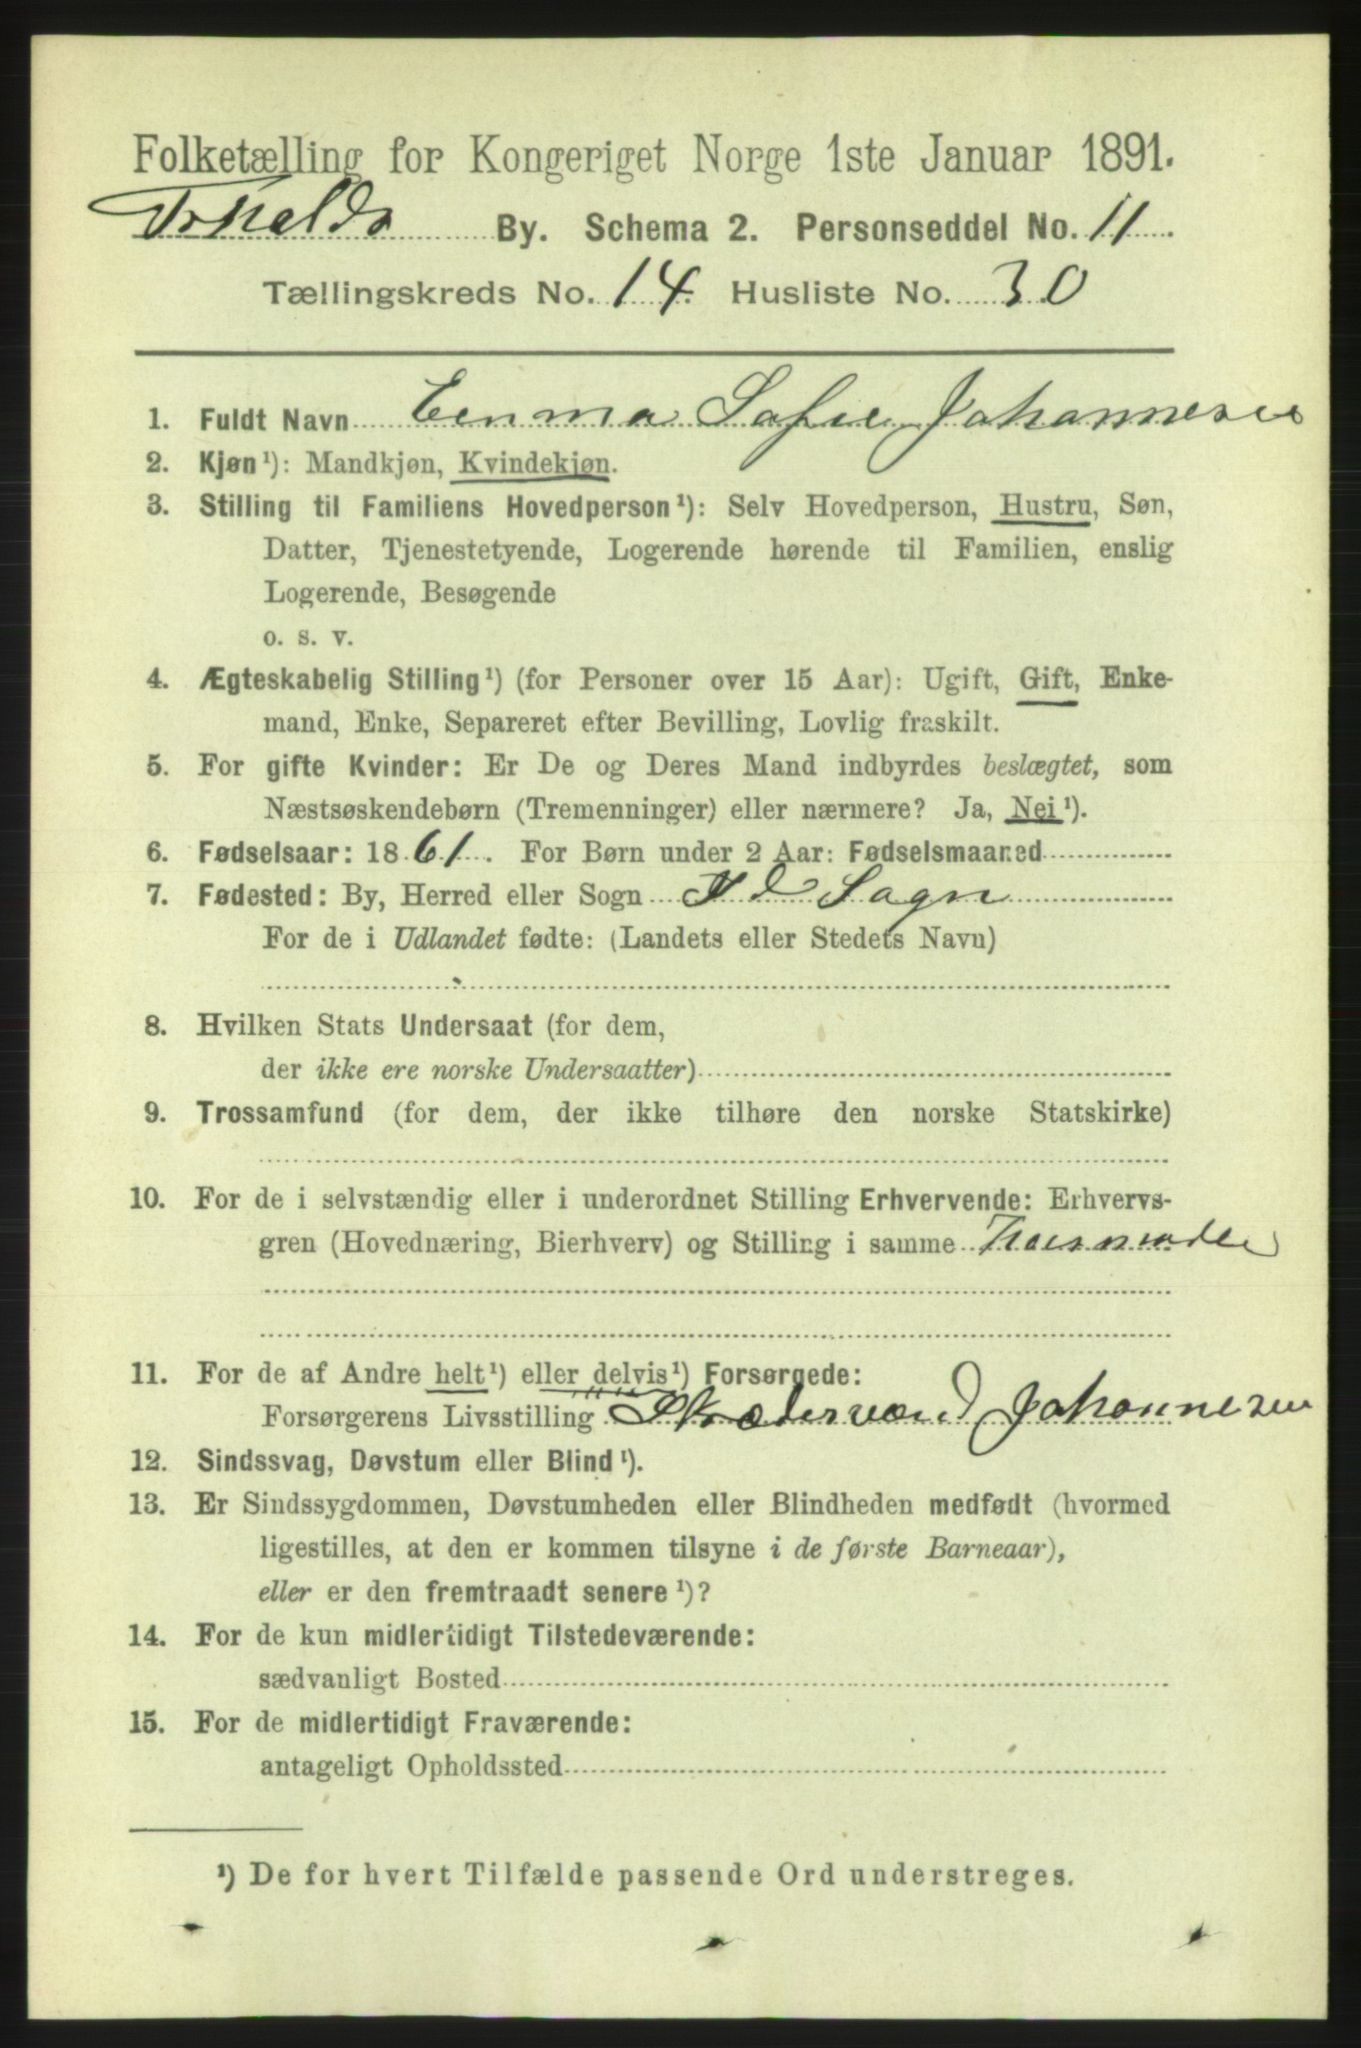 Folketælling for Kongeriget Norge 1ste Januar 1891.
Frhald By. Schema 2. Personseddel No. 11.
Tællingskreds No. 14. Husliste No. 30
1. Fuldt Navn Emma Sofie Johannesen
2. Kjøn¹): Mandkjøn, Kvindekjøn.
3. Stilling til Familiens Hovedperson¹): Selv Hovedperson, Hustru, Søn,
Datter, Tjenestetyende, Logerende hørende til Familien, enslig
Logerende, Besøgende
o. s. v.
4. Ægteskabelig Stilling¹) (for Personer over 15 Aar): Ugift, Gift, Enke-
mand, Enke, Separeret efter Bevilling, Lovlig fraskilt.
5. For gifte Kvinder: Er De og Deres Mand indbyrdes beslægtet, som
Næstsøskendebørn (Tremenninger) eller nærmere? Ja, Nei¹).
6. Fødselsaar: 1861. For Børn under 2 Aar: Fødselsmaaned
7. Fødested: By, Herred eller Sogn Id Sogn
For de i Udlandet fødte: (Landets eller Stedets Navn)
8. Hvilken Stats Undersaat (for dem,
der ikke ere norske Undersaatter)
9. Trossamfund (for dem, der ikke tilhøre den norske Statskirke)
10. For de i selvstændig eller i underordnet Stilling Erhvervende: Erhvervs-
gren (Hovednæring, Bierhverv) og Stilling i samme
11. For de af Andre helt¹) eller delvis¹) Forsørgede:
Forsørgerens Livsstilling Skrædersvend Johannesen
12. Sindssvag, Døvstum eller Blind¹).
13. Er Sindssygdommen, Døvstumheden eller Blindheden medfødt (hvormed
ligestilles, at den er kommen tilsyne i de første Barneaar),
eller er den fremtraadt senere¹)?
14. For de kun midlertidigt Tilstedeværende:
sædvanligt Bosted
15. For de midlertidigt Fraværende:
antageligt Opholdssted
¹) De for hvert Tilfælde passende Ord understreges.